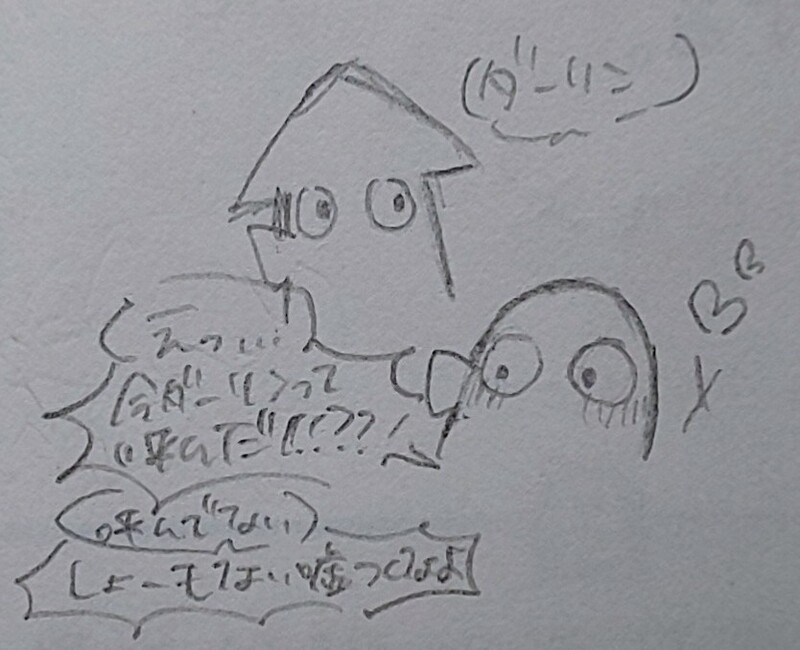 (ダーリン)
えっ…
今ダーリンって
呼んだ!!??
呼んでない
しょーもない嘘つくなよ